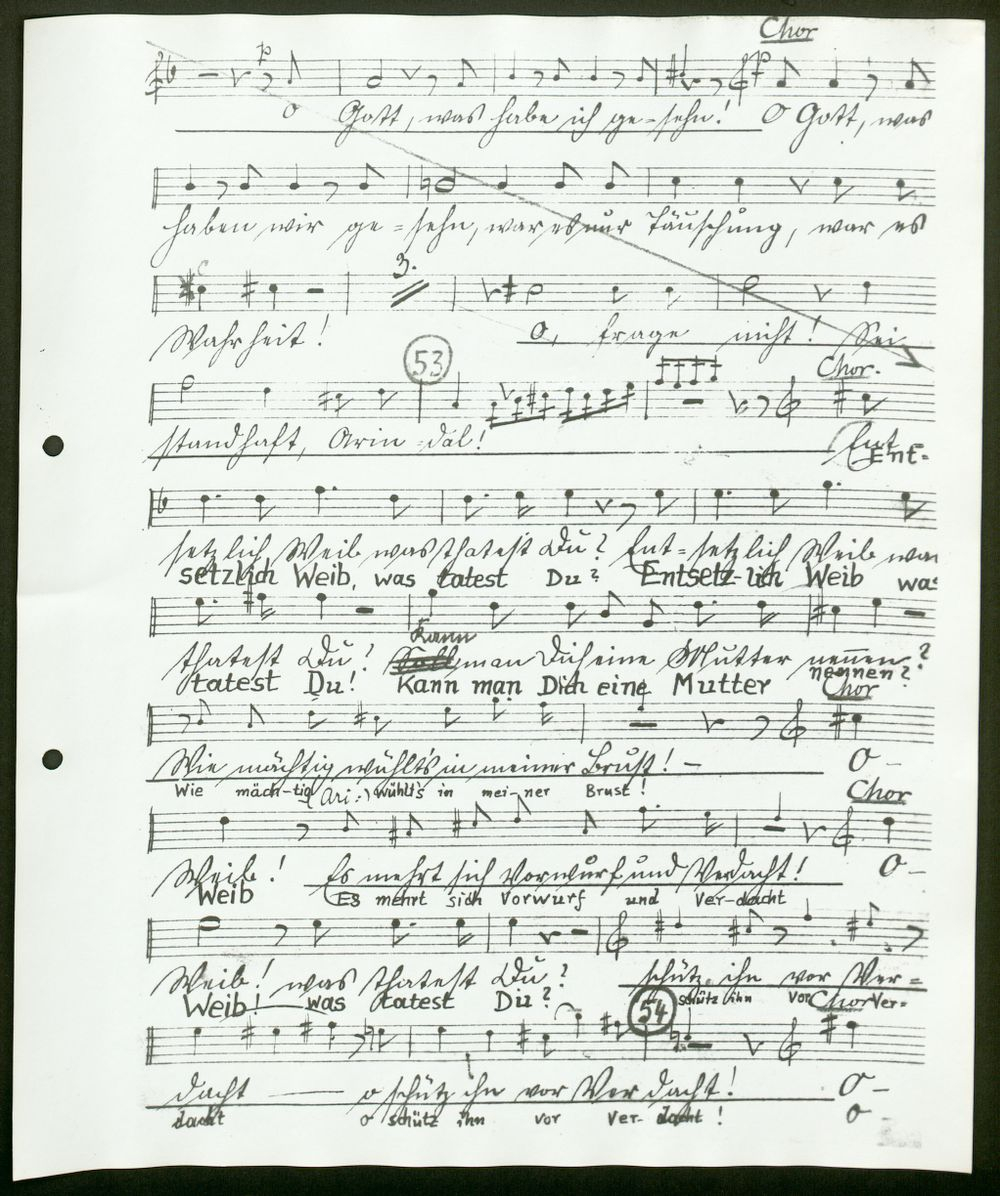 Chor
p
O Gott, was habe ich ge-sehn! O Gott, was
haben wir ge-sehn, war es nur Täuschung, war es
3.
Wahrheit! O, frage nicht! Sei
53
Chor.
standhaft, Arin-dal! Ent
Ent-
setzlich Weib was thatest Du? Ent-setzlich Weib was
setzlich Weib, was tatest Du? Entsetz-lich Weib wa
Kann
thatest Du? man Dich eine Mutter nennen?
tatest Du! Kann man Dich eine Mutter nennen?
Chor
Wie mächtig wühlt's in meiner Brust! – O –
Wie mäch-tig (Ari:) wühlt's in mei-ner Brust!
Chor
Weib! Es mehrt sich Vorwurf und Verdacht! O –
Weib Es mehrt sich Vorwurf und Ver-dacht
Weib! was thatest Du? schütz ihn vor Ver=
Weib! was tatest Du? schütz ihn vor Ver-
54
Chor
dacht o schütz ihn vor Verdacht! O –
dacht o schütz ihn vor Ver-dacht! O –